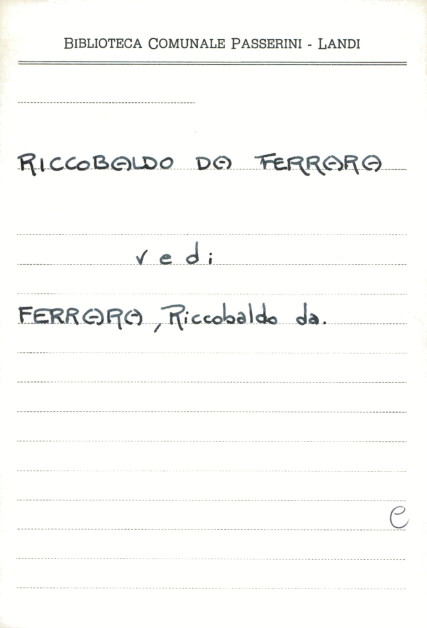 BIBLIOTECA COMUNALE PASSERINI - LANDI
RICCOBALDO DA FERRARA
vedi
FERRARA, Riccobaldo da.
C